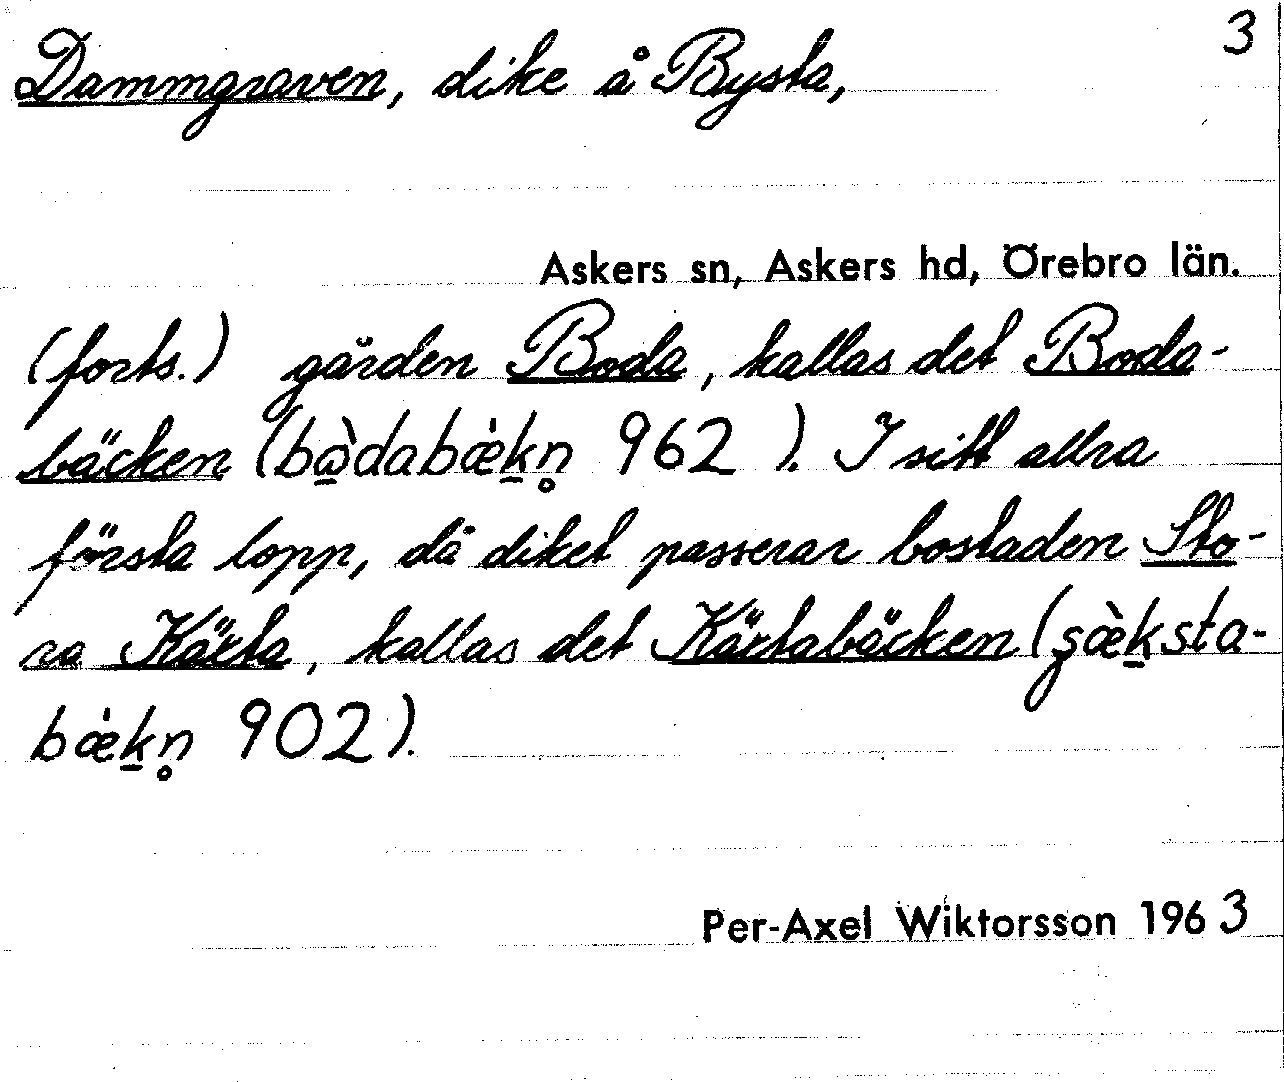 3
Dammgraven, dike å Bysta,
Askers sn, Askers hd, Örebro län.
(forts.) gården Boda, kallas det Boda-
bäcken (bа̀dabæ̀kn̥ 962 ). I sitt allra
första lopp, då diket passerar bostaden Sto-
ra Kärta, kallas det Kärtabäcken (şæ̀ksta-
bæ̀kn̥ 902).
Per-Axel Wiktorsson 1963